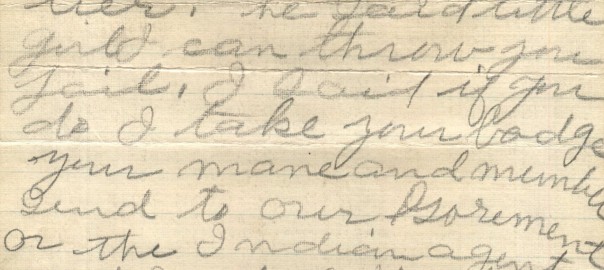 he said little
girld can throw you
Jail, I said if you
do I take your badge
your mane and mumber
send to our
or the Indian agent